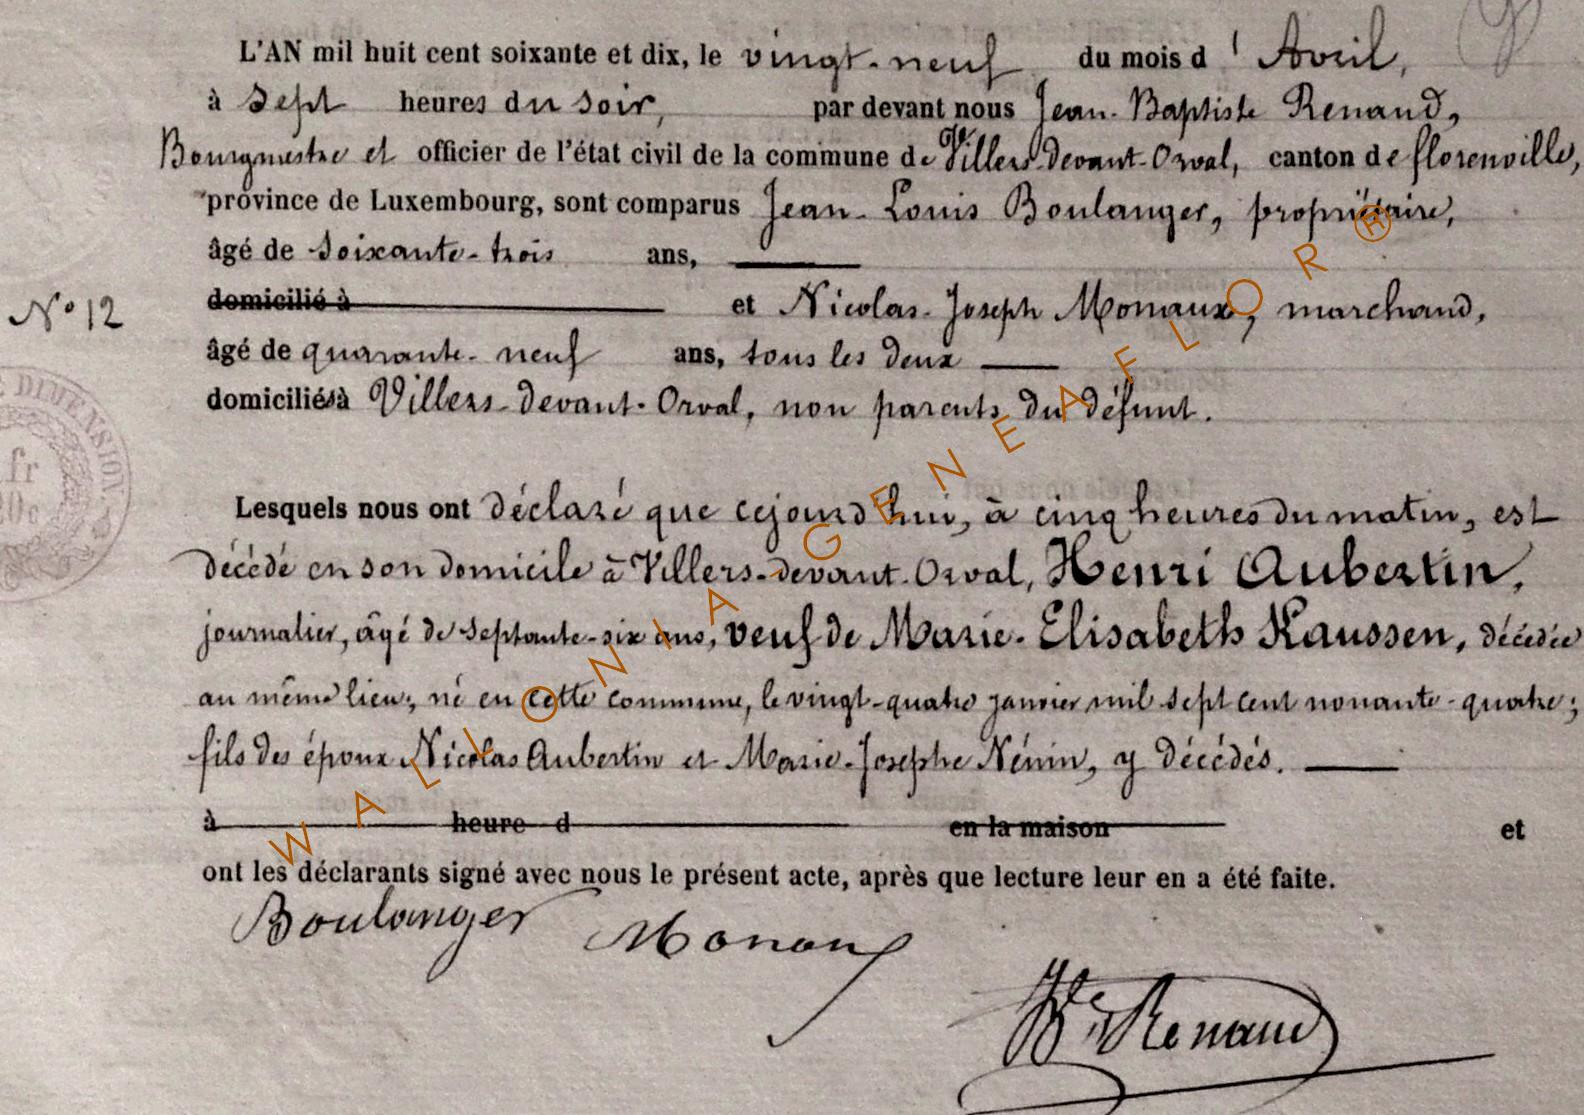 L'AN mil huit cent soixante et dix, le vingt-neuf du mois d'Avril,
à sept heures du soir, par devant nous Jean-Baptiste Renaud,
Bourgmestre et officier de l'état civil de la commune de Villers-devant-Orval, canton de florenville,
province de Luxembourg, sont comparus Jean-Louis Boulanger, propriétaire,
âgé de soixante-trois ans,
domicilié à et Nicolas-Joseph Monaux, marchand,
N° 12
âgé de quarante-neuf ans, tous les deux
domiciliés à Villers-devant-Orval, non parents du défunt.
E DIMENSION
fr
20c
Lesquels nous ont déclaré que cejourd'hui, à cinq heures du matin, est
décédé en son domicile à Villers-devant-Orval, Henri Aubertin,
journalier, âgé de septante-six ans, veuf de Marie-Elisabeth Kaussen, décédée
au même lieu; né en cette commune, le vingt-quatre janvier mil sept cent nonante-quatre;
fils des époux Nicolas Aubertin et Marie-Josephe Nénin, y décédés.
à heure d en la maison et
ont les déclarants signé avec nous le présent acte, après que lecture leur en a été faite.
Boulanger Monaux
Renaud
WALLONIA-GENEAFLOR®